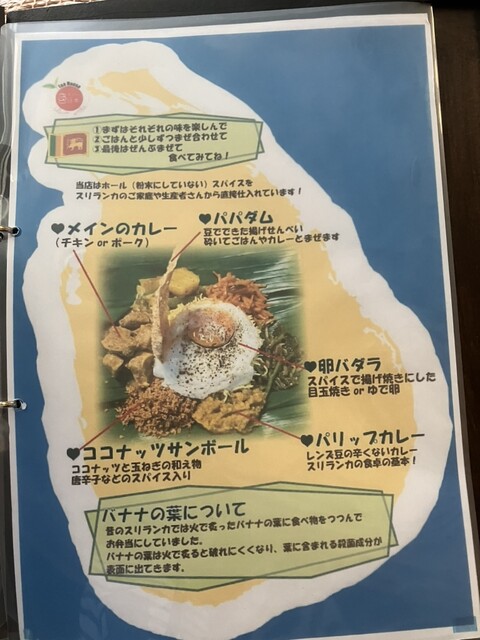 Tea House
①まずはそれぞれの味を楽しんで
②ごはんと少しずつまぜ合わせて
③最後はぜんぶまぜて
食べてみてね！
当店はホール（粉末にしていない）スパイスを
スリランカのご家庭や生産者さんから直接仕入れています！
♥メインのカレー
（チキン or ポーク）
♥パパダム
豆でできた揚げせんべい
砕いてごはんやカレーとまぜます
♥卵バダラ
スパイスで揚げ焼きにした
目玉焼き or ゆで卵
♥ココナッツサンボール
ココナッツと玉ねぎの和え物
唐辛子などのスパイス入り
♥パリップカレー
レンズ豆の辛くないカレー
スリランカの食卓の基本！
バナナの葉について
昔のスリランカでは火で炙ったバナナの葉に食べ物をつつんで
お弁当にしていました。
バナナの葉は火で炙ると破れにくくなり、葉に含まれる殺菌成分が
表面に出てきます。